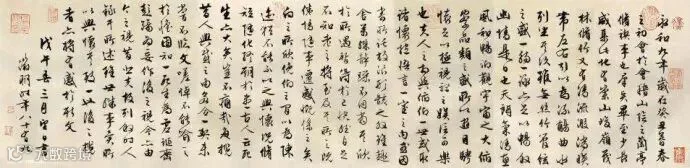 永和九年歲在癸丑暮春
之初會于會稽山陰之蘭亭
脩禊事也羣賢畢至少長
咸集此地有崇山峻領茂
林脩竹又有清流激湍映
帶左右引以為流觴曲水
列坐其次雖無絲竹管絃之
盛一觴一詠亦足以暢敘
幽情是日也天朗氣清惠
風和暢仰觀宇宙之大俯
察品類之盛所以遊目騁
懷足以極視聽之娛信可樂
也夫人之相與俯仰一世或取
諸懷抱悟言一室之內或因
寄所託放浪形骸之外雖趣
舍萬殊靜躁不同當其欣
於所遇暫得於己快然自足
不知老之將至及其所之既
倦情隨事遷感慨係之矣
向之所欣俛仰之間以為陳
迹猶不能不以之興懷況脩
短隨化終期於盡古人云死
生亦大矣豈不痛哉每攬
昔人興感之由若合一契未
嘗不臨文嗟悼不能喻之
於懷固知一死生為虛誕齊
彭殤為妄作後之視今亦由
今之視昔悲夫故列敘時人
錄其所述雖世殊事異所
以興懷其致一也後之攬
者亦將有感於斯文
戊午春三月望日書
徵明時年八十有九